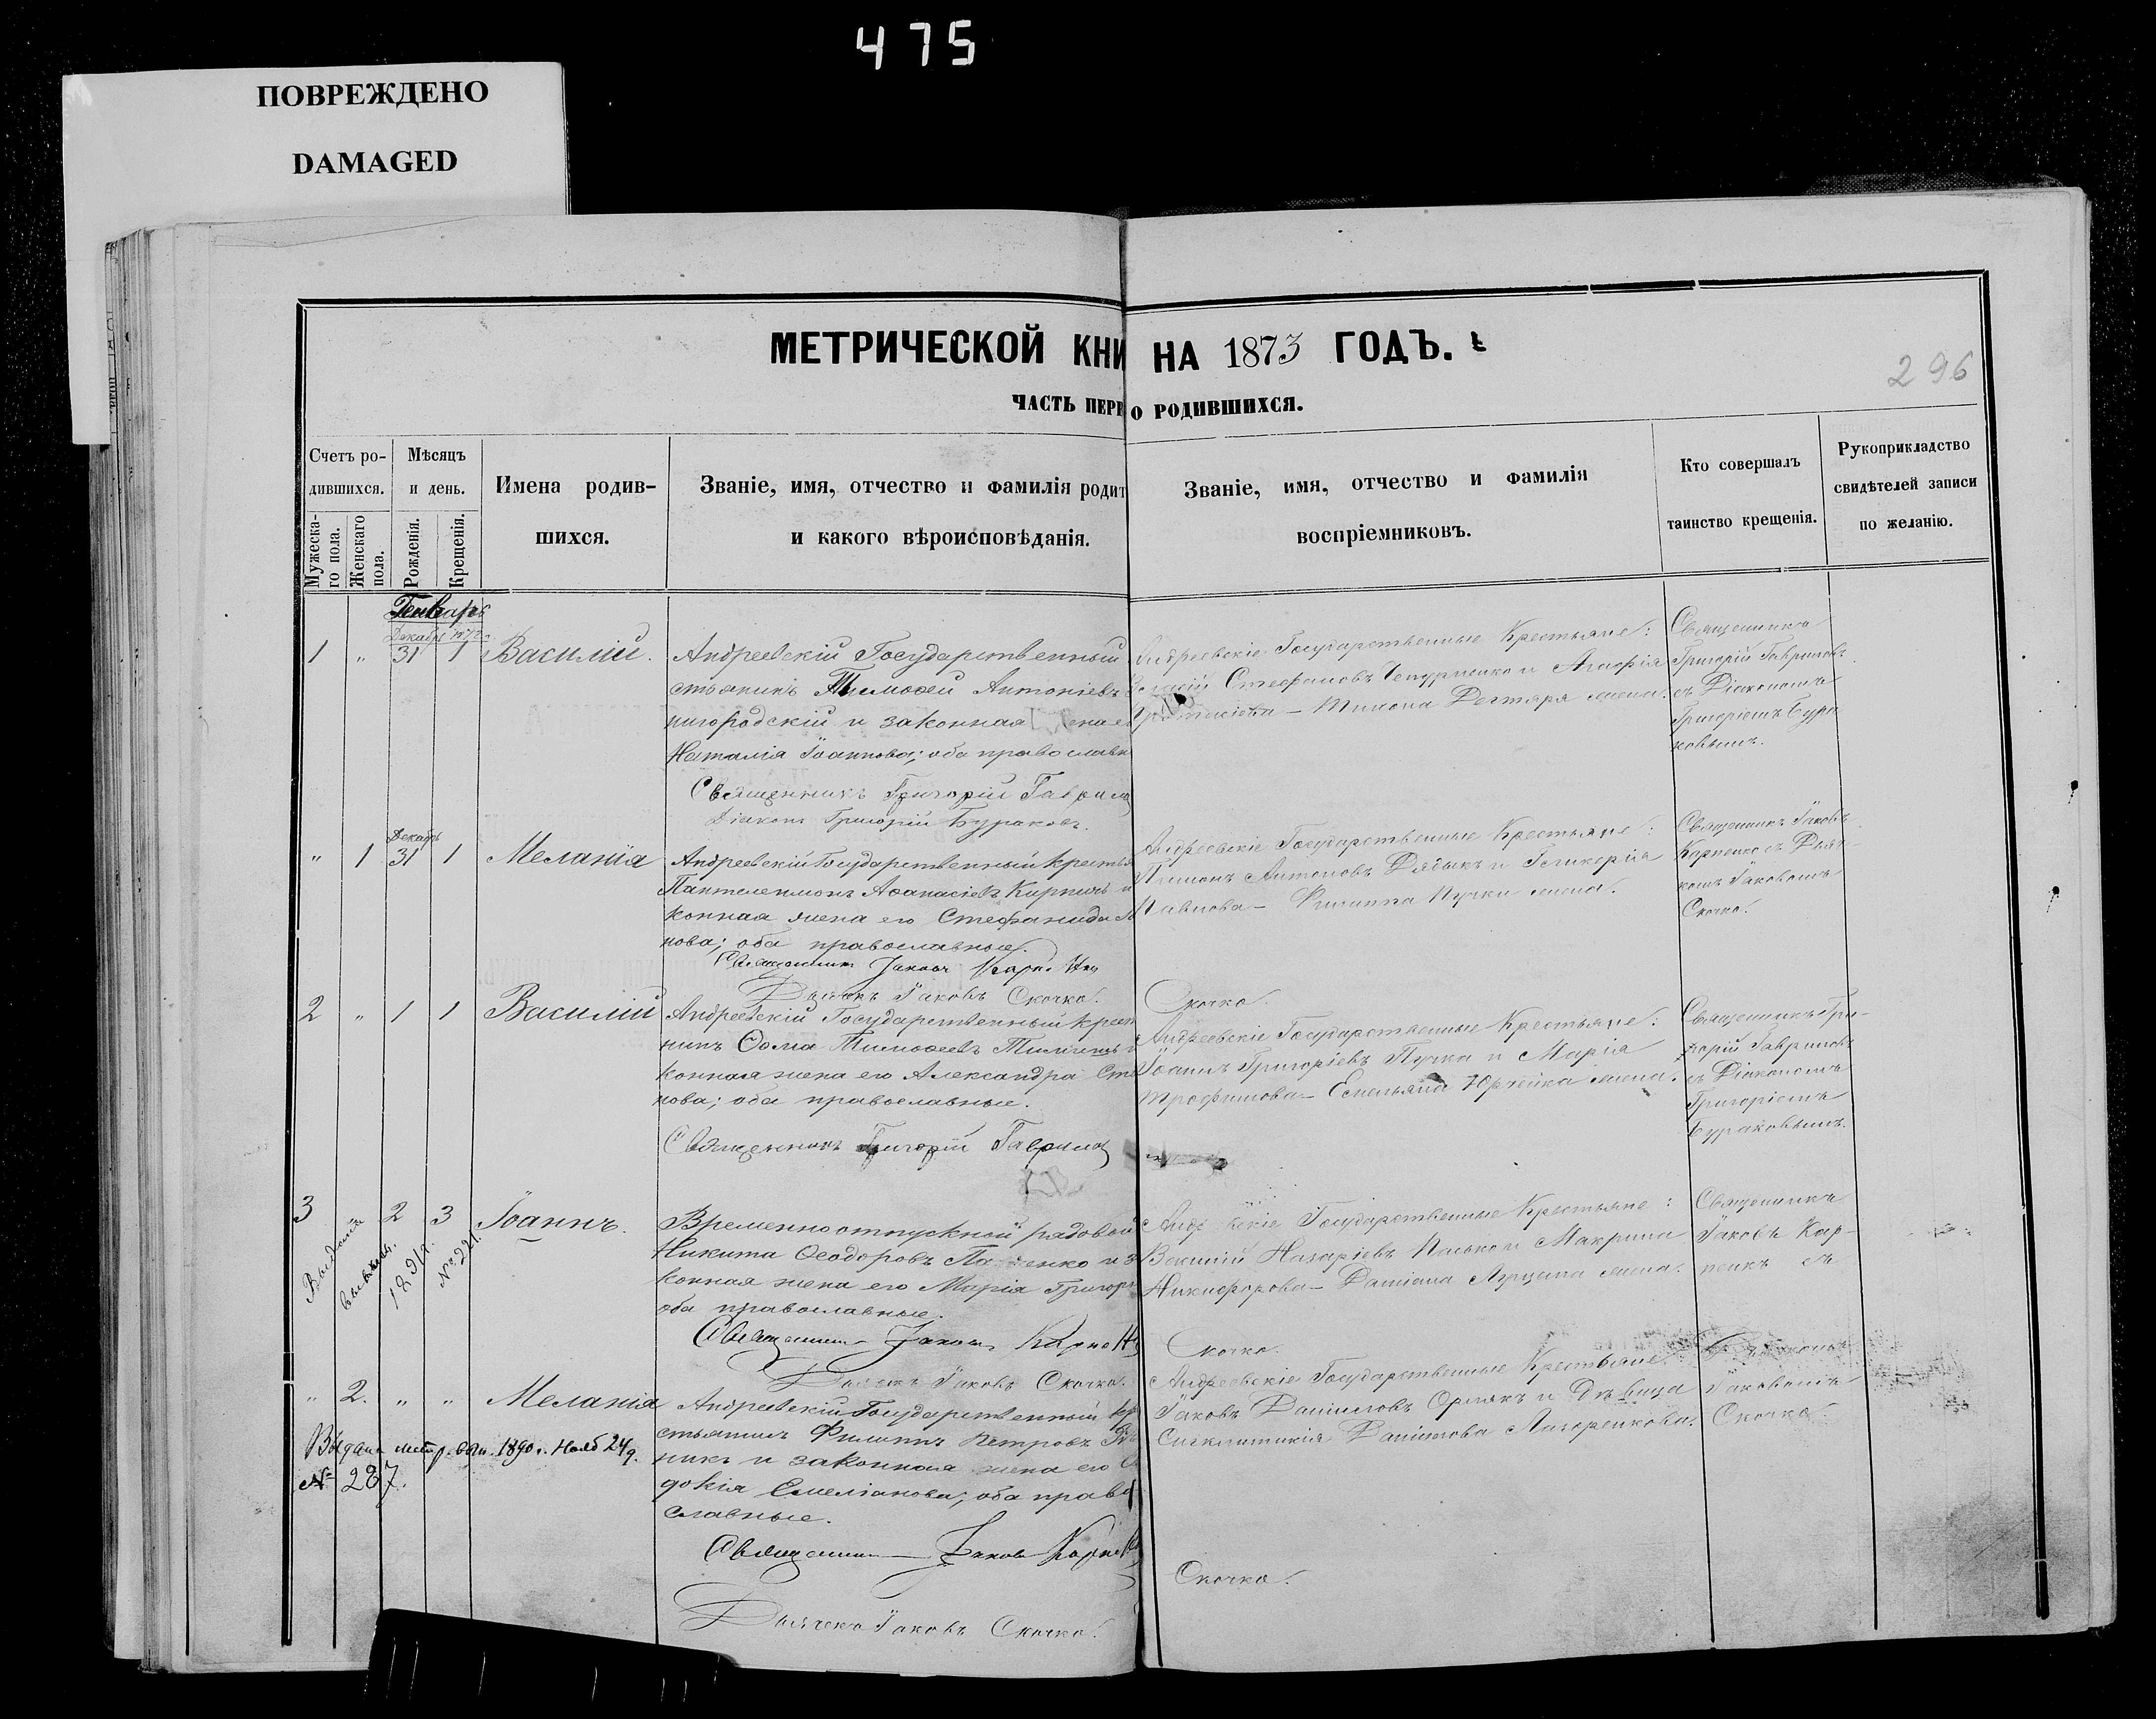 475
ПОВРЕЖДЕНО
DAMAGED
МЕТРИЧЕСКОЙ КНИ НА 1873 ГОДЪ.
296
ЧАСТЬ ПЕРВ О РОДИВШИХСЯ.
Счетъ ро-
дившихся.
Мужеска-
го пола.
Женскаго
пола.
Мѣсяцъ
и день.
Рожденія.
Крещенія.
Имена родив-
шихся.
Званіе, имя, отчество и фамилія родит
и какого вѣроисповѣданія.
Званіе, имя, отчество и фамилія
воспріемниковъ.
Кто совершалъ
таинство крещенія.
Рукоприкладство
свидѣтелей записи
по желанію.
Генварь
Декабр 1872
1 „ 31 1 Василій.
Андреевскій Государственный
стьянинъ Тимоѳей Антоніевъ
нигородскій и законная жена е
Наталія Іоаннова; оба православн
Священникъ Григорій Гаврил
Діаконъ Григорій Бураковъ.
Андреевскіе Государственные Крестьяне:
Стефановъ и Агафія
Тихона Дегтяря жена.
Священникъ
Григорій Гавриловъ
съ Діакономъ
Григоріемъ Бура
ковымъ.
Декабрь
„ 1 31 1 Меланія
Андреевскій Государственный крестья
Пантелеимонъ Аѳанасіевъ Кирпичъ и
конная жена его Стефанида
нова; оба православные.
Священникъ Іаковъ Карпенк
Дьячекъ Іаковъ Скочко.
Андреевскіе Государственные Крестьяне:
Антоновъ Дядыкъ и Гликерія
Павлова – Филиппа Пучки жена.
Скочко.
Священникъ Іаковъ
Карпенко съ Дьяч-
комъ Іаковомъ
Скочко.
2 „ 1 1 Василій
Андреевскій Государственный крест
нинъ Ѳома Тимоѳеевъ
конная жена его Александра Сте
нова; оба православные.
Священникъ Григорій Гаврил
Андреевскіе Государственные Крестьяне:
Іоаннъ Григоріевъ Пучка и Марія
Трофимова – Емельяна жена.
Священникъ Гри-
горій Гавриловъ
съ Діакономъ
Григоріемъ
Бураковымъ.
3 2 3 Іоаннъ.
1891
№ 221.
Временноотпускной рядовой
Никита Ѳеодоровъ и з
конная жена его Марія Григор
оба православные.
Священникъ Іаковъ Карпен
Дьячекъ Іаковъ Скочко.
Государственные Крестьяне:
Василій Назаріевъ и Макрина
Никифорова – Даміана жена.
Скочко.
Священникъ
Іаковъ Кар-
съ
Іаковомъ
Скочко.
„ 2. „ „ Меланія
Выдана метр. вып. 1890 г. Нояб 24 д.
№ 287.
Андреевскій Государственный кр
стьянинъ Филиппъ Петровъ
никъ и законная жена его
докія Емеліанова; оба право
славные.
Священникъ Іаковъ Карпен
Дьячекъ Іаковъ Скочко.
Андреевскіе Государственные Крестьяне:
Іаковъ Даніиловъ и дѣвица
Синклитикія Даніилова Лазоренкова.
Скочко.